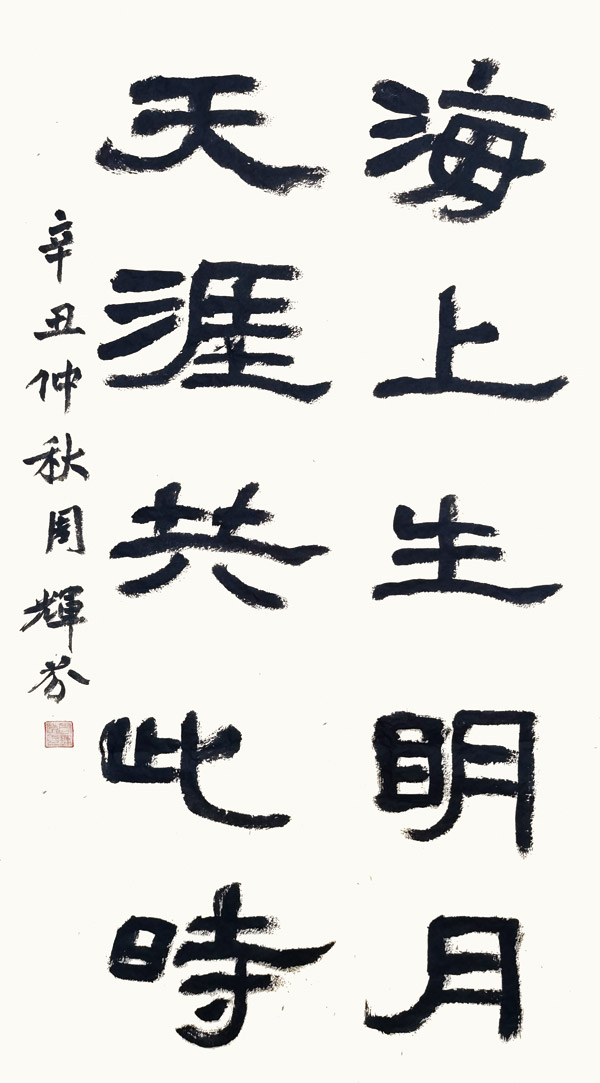 海上生明月
天涯共此時
辛丑仲秋周輝芬